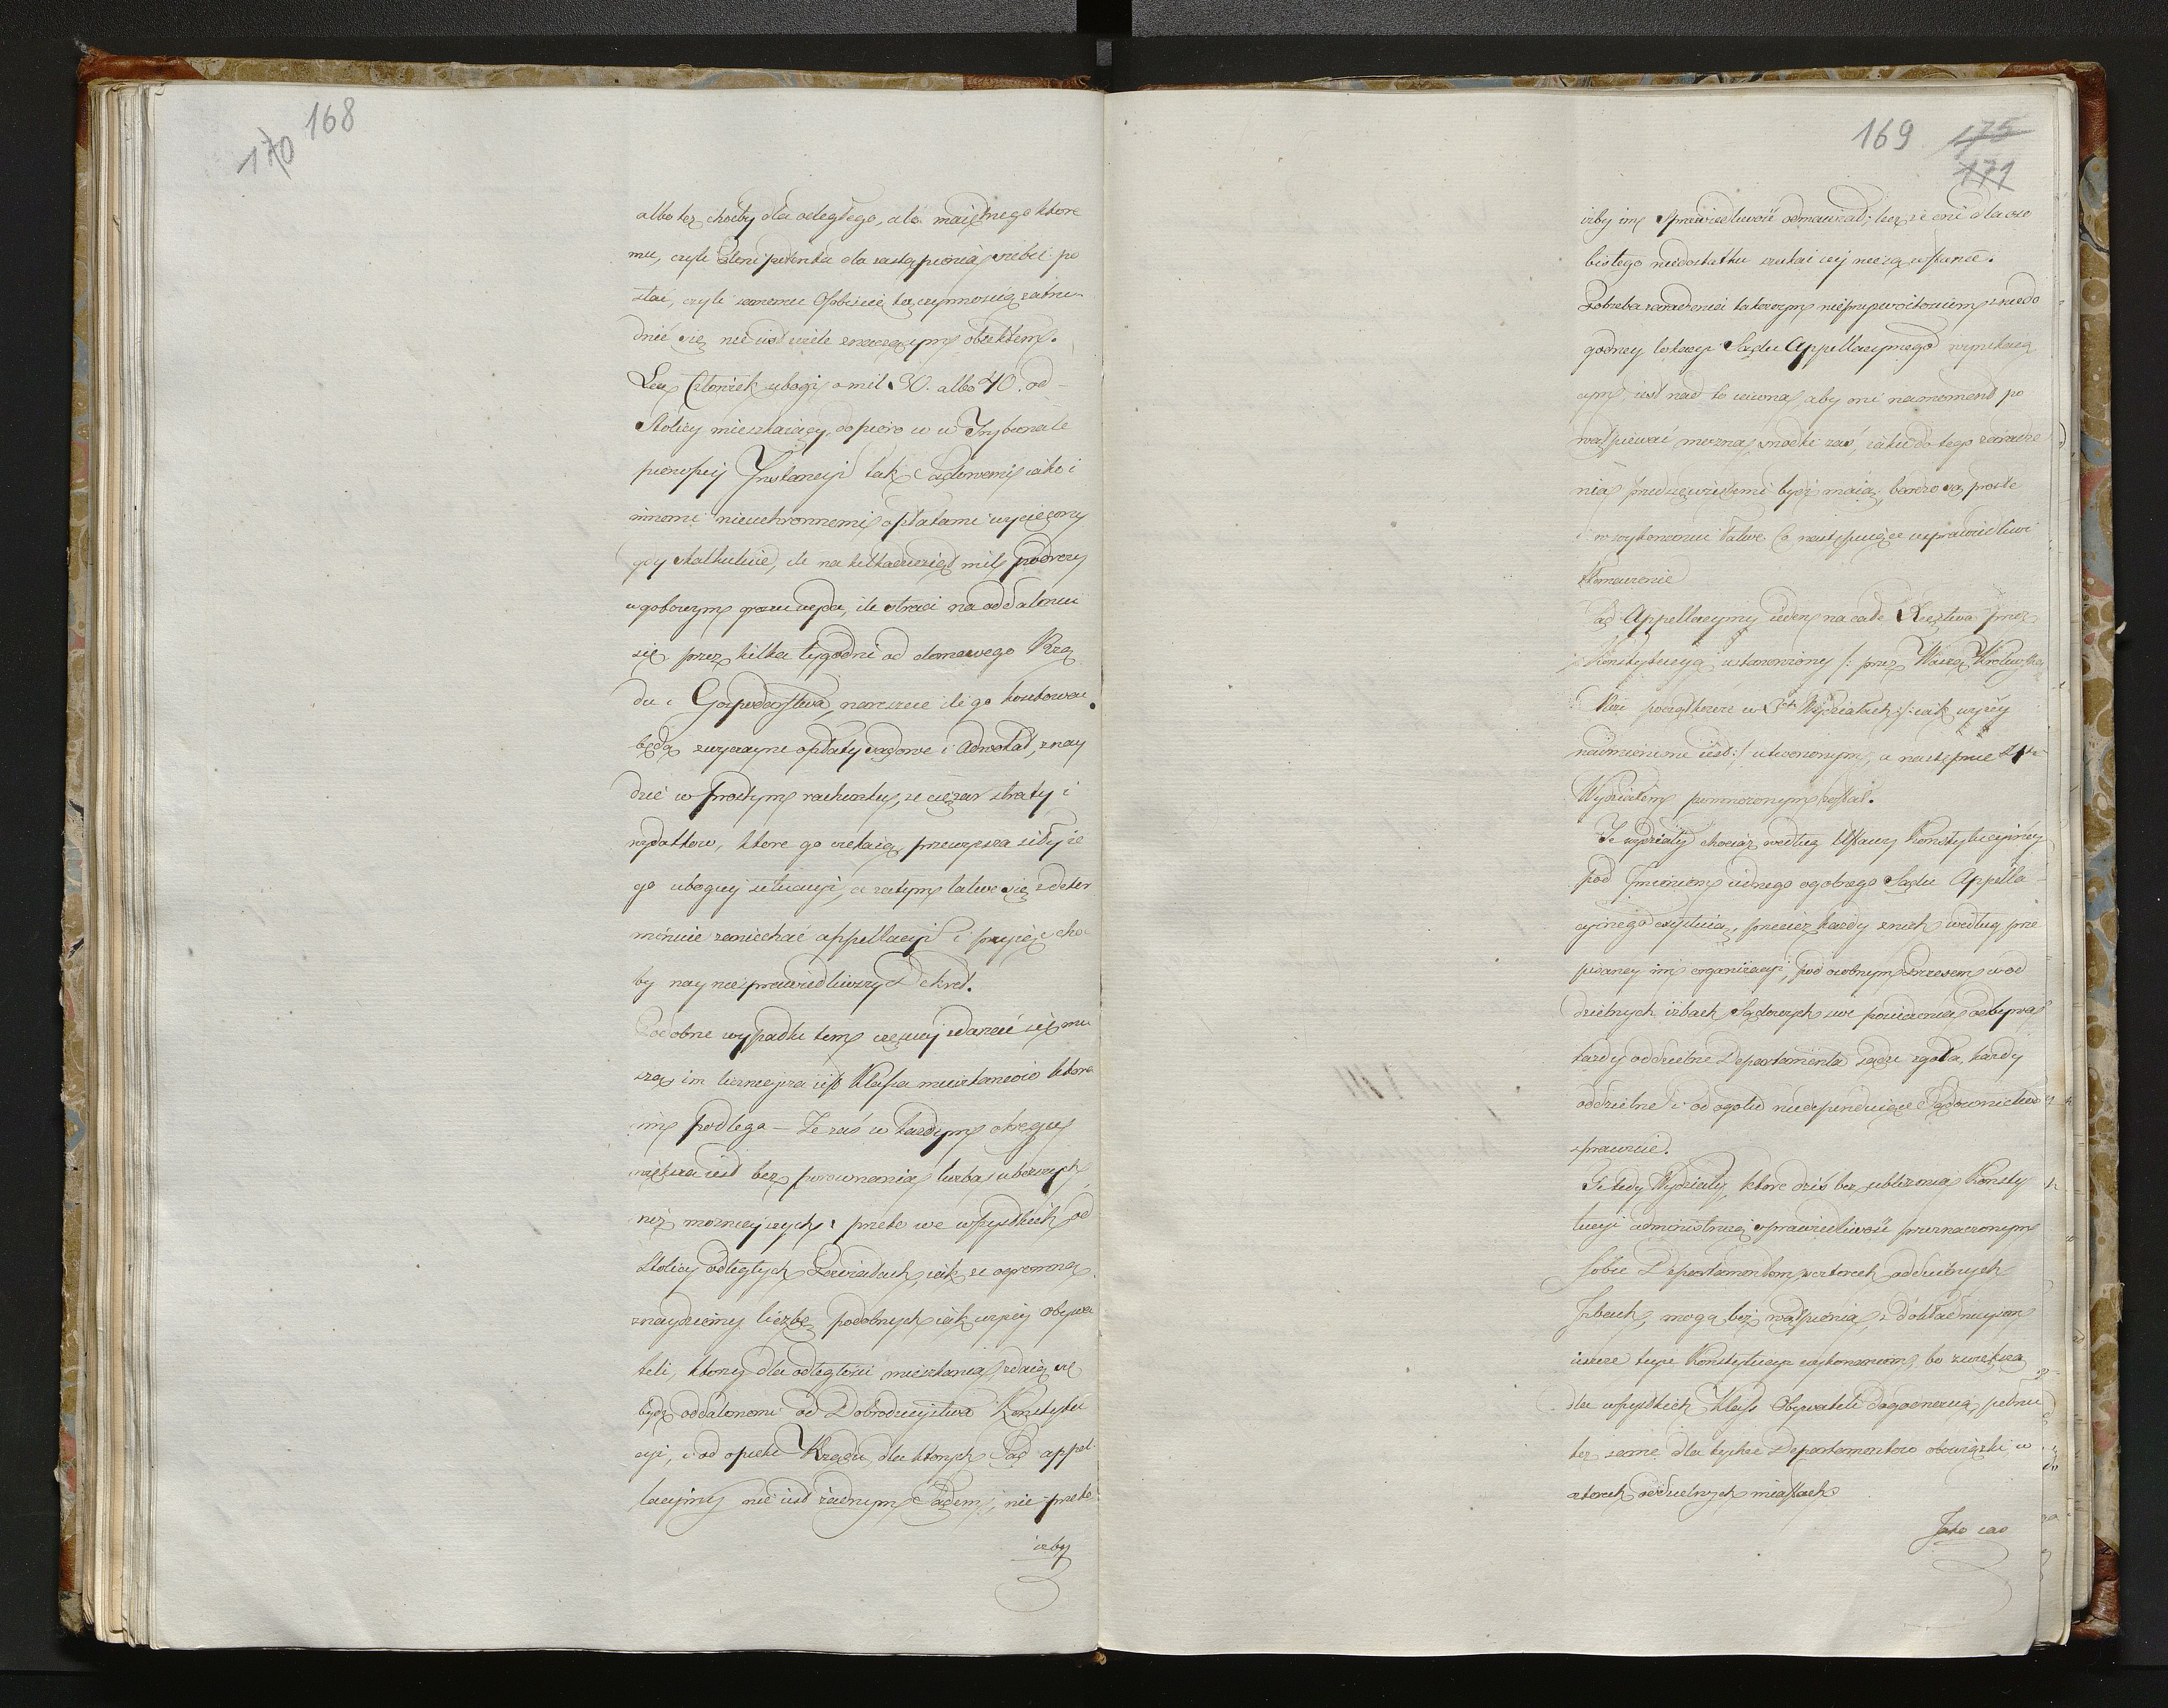 168
170
albo też choćby dla odległego, ale maiętnego ktore
mu, czyli Plenipotenta dla zastąpienia siebie po
słać, czyli samemu Osobiście tą czynnością zatru-
dnić się nie iest wiele znaczącym obiektem.
Lecz Człowiek ubogi o mil 30. albo 40. od
Stolicy mieszkaiący, dopiero co w Trybunale
pierwszej Instancyi tak Sądowemi iako i
innemi nieuchronnemi opłatami wycięczony
gdy skalkuluie, ile na kilkadziesiąt mil podroży
w gotowym groszu wyda, ile straci na oddaleniu
się przez kilka tygodni od domowego Rzą
du i Gospodarstwa, nareszcie ile go kosztować
będą zwyczayne opłaty sądowe i Adwokat, znay
dzie w prostym rachunku, że ciężar straty i
wydatkow, ktore go czekaią, przewyższa siły ie
go ubogiej sytuacyi, a zatym łatwo się zdeter
minuie zaniechać appellacyi i przyiąć cho
by nayniesprawiedliwszy Dekret.
Podobne wypadki tem częściej zdarzać się mu
szą im licznieysza iest Klassa mieszkancow ktora
im podlega – Że zaś w każdym okręgu
większa iest bez porownania liczba uboższych
niż możnieyszych; przeto we wszystkich od
Stolicy odległych Powiatach, iakże ogromną
znaydziemy liczbę podobnych iak wyżej obywa
teli, ktorzy dla odległości mieszkania zdaią się
bydź oddalonemi od Dobrodzieystwa Konstytu
cyi, i od opieki Rządu, dla ktorych Sąd appel
lacyiny nie iest żadnym Sądem, nie przeto
iżby
169 175
171
iżby im sprawiedliwość odmawiał; lecz że oni dla oso
bistego niedostatku szukać iej nie są w stanie.
Potrzeba zaradzenia takowym nieprzyzwoitościom z niedo
godney lokacyi Sądu Appellacyinego wynikaią
cym, iest nad to iawna, aby oni na moment po
wątpiewać można, środki zaś, iakie do tego zaradze
nia przedsięwziętemi bydź maią, bardzo są proste
i w wykonaniu łatwe Co następuiące usprawiedliwi
tłomaczenie
Sąd Appellacyiny ieden na całe Xięztwo przez
Konstytucyą ustanowiony /: przez Waszą Krolewską
Mość początkowie w 3ch Wydziałach :/: iak wyżey
nadmieniono iest :/ utworzonym, a następnie 4tm
Wydziałem pomnożonym został.
Te wydziały chociaż według Ustawy Konstytucyiney
pod Imieniem iednego ogolnego Sądu Appella
cyinego exystuią, przecież każdy z nich według prze
pisaney im organizacyi, pod osobnym Prezesem w od
dzielnych izbach Sądowych swe posiedzenia odbywa
każdy oddzielne Departamenta sądzi zgoła, każdy
oddzielne i od ogołu niedependuiące Sądownictwo
sprawuie.
Te tedy Wydziały, ktore dziś bez ubliżenia Konsty
tucyi administruią sprawiedliwość przeznaczonym
sobie Departamentom w czterech oddzielnych
Izbach, mogą bez wątpienia, z dokładnieyszym
ieszcze teyże Konstytucyi wykonaniem, bo z większą
dla wszystkich Klass Obywateli dogodnością, pełnić
też same dla tychże Departamentow obowiązki, w
czterech oddzielnych miastach
Jako zaś